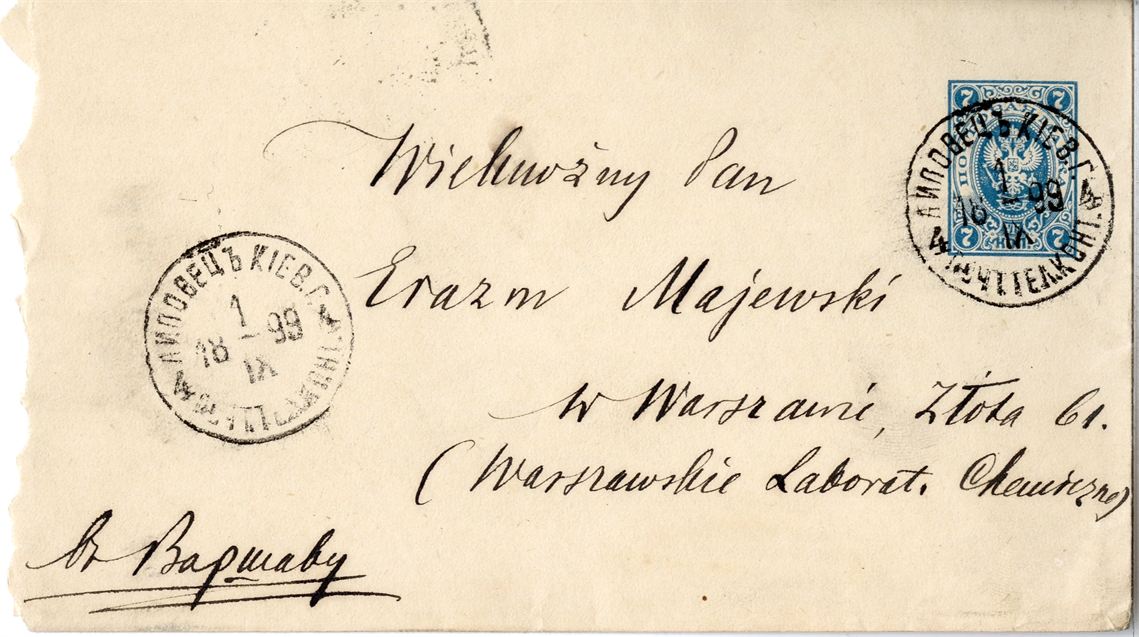 7 7
ПОЧТОВАЯ
7 КОП. 7
ЛИПОВЕЦЪ КІЕВ.Г.
1
18 – 99
IX
4 ПОЧ.ТЕЛ.КОНТ. 4
Wielmożny Pan
Erazm Majewski
w Warszawie, Złota 61.
(Warszawskie Laborat. Chemiczne)
ЛИПОВЕЦЪ КІЕВ.Г.
1
18 – 99
IX
въ Варшаву